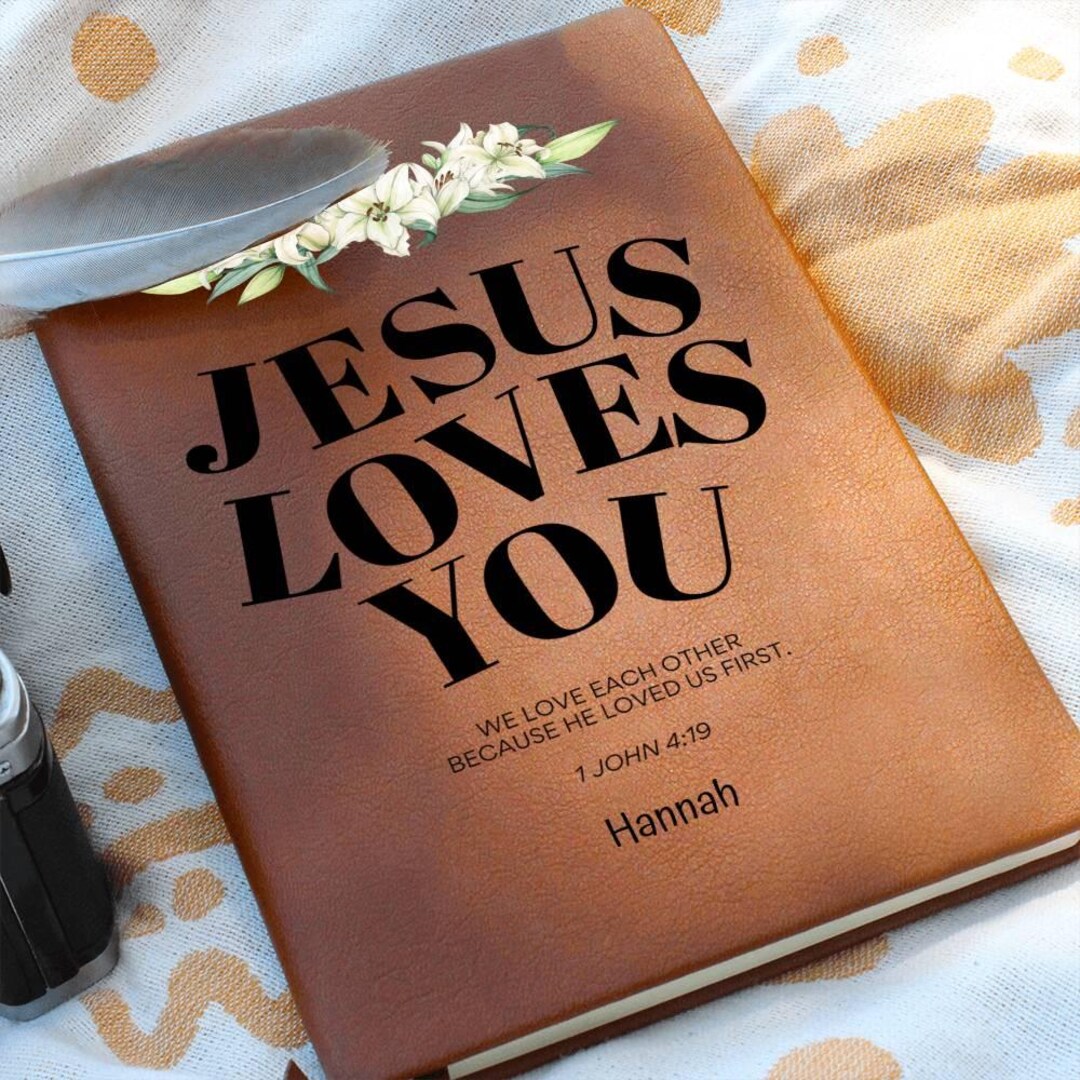 JESUS
LOVES
YOU
WE LOVE EACH OTHER
BECAUSE HE LOVED US FIRST.
1 JOHN 4:19
Hannah